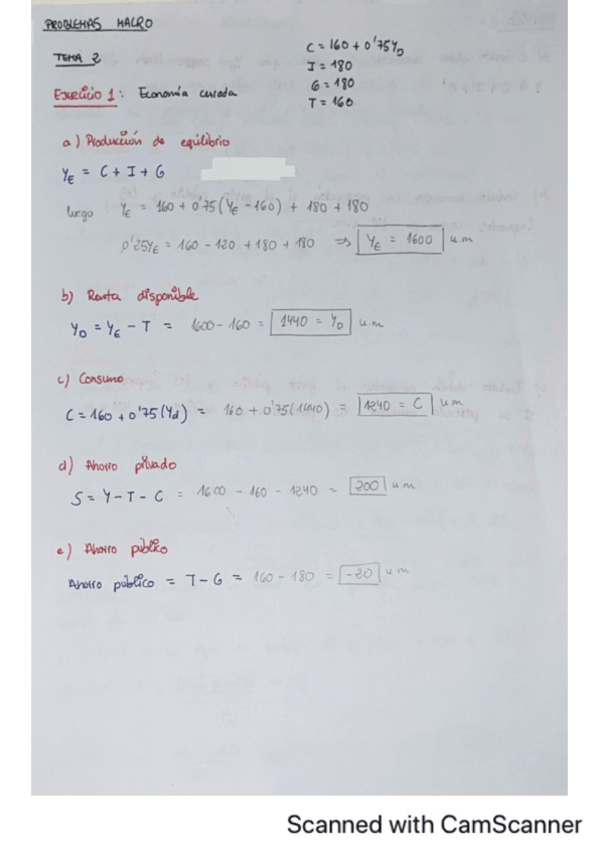 PROBLEMAS MACRO
TEMA 2
C = 160 + 0'75Y_D
I = 180
G = 180
T = 160
EJERCICIO 1: Economía cerrada
a) Producción de equilibrio
Y_E = C + I + G
luego Y_E = 160 + 0'75(Y_E - 160) + 180 + 180
0'25Y_E = 160 - 120 + 180 + 180 ⇒ Y_E = 1600 u.m
b) Renta disponible
Y_D = Y_E - T = 1600 - 160 = 1440 = Y_D u.m
c) Consumo
C = 160 + 0'75(Y_d) = 160 + 0'75(1440) = 1240 = C u.m
d) Ahorro privado
S = Y - T - C = 1600 - 160 - 1240 = 200 u.m
e) Ahorro público
Ahorro público = T - G = 160 - 180 = -20 u.m
Scanned with CamScanner